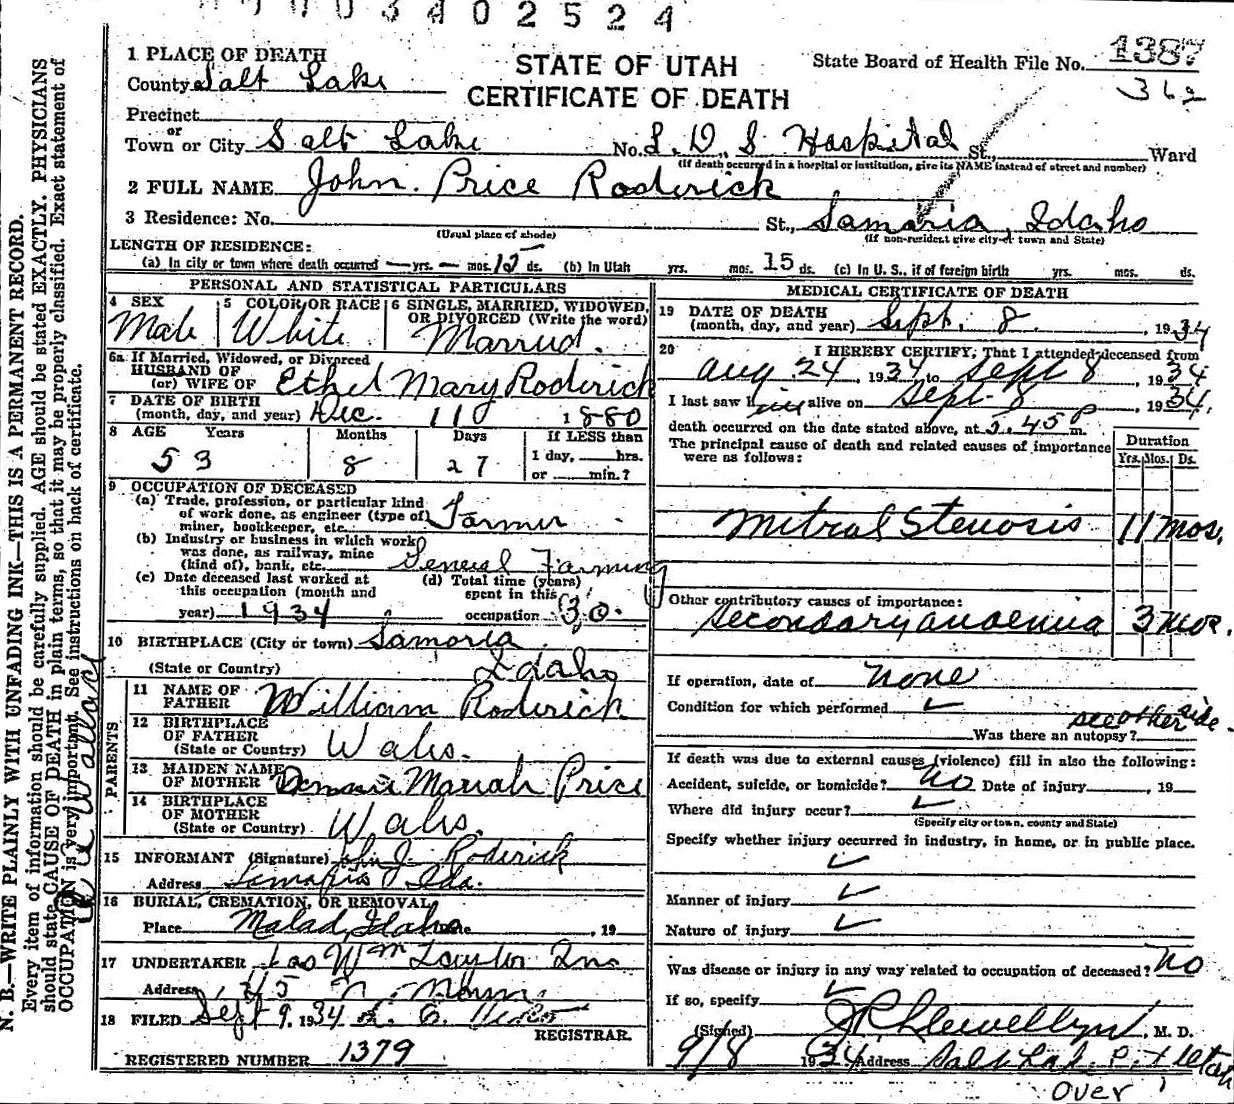 0 0 3 4 0 2 5 2 4
1 PLACE OF DEATH
County Salt Lake
STATE OF UTAH
CERTIFICATE OF DEATH
State Board of Health File No. 1387
362
Precinct
or
Town or City Salt Lake No. L. D. S Hospital St. Ward
(If death occurred in a hospital or institution, give its NAME instead of street and number)
2 FULL NAME John Price Roderick
3 Residence: No. St., Samaria, Idaho
(Usual place of abode) (If non-resident give city or town and State)
LENGTH OF RESIDENCE:
(a) In city or town where death occurred — yrs. — mos. 15 ds. (b) In Utah yrs. mos. 15 ds. (c) In U. S., if of foreign birth yrs. mos. ds.
PERSONAL AND STATISTICAL PARTICULARS
4 SEX
Male
5 COLOR OR RACE
White
6 SINGLE, MARRIED, WIDOWED,
OR DIVORCED (Write the word)
Married.
6a If Married, Widowed, or Divorced
HUSBAND OF
(or) WIFE OF Ethel Mary Roderick
7 DATE OF BIRTH
(month, day, and year) Dec. 11 1880
8 AGE Years Months Days If LESS than
1 day, hrs.
or min.?
53 8 27
9 OCCUPATION OF DECEASED
(a) Trade, profession, or particular kind
of work done, as engineer (type of)
miner, bookkeeper, etc. Farmer
(b) Industry or business in which work
was done, as railway, mine
(kind of), bank, etc. General Farming
(c) Date deceased last worked at
this occupation (month and
year) 1934
(d) Total time (years)
spent in this
occupation 30.
10 BIRTHPLACE (City or town) Samaria
(State or Country) Idaho
PARENTS
11 NAME OF
FATHER William Roderick
12 BIRTHPLACE
OF FATHER
(State or Country) Wales.
13 MAIDEN NAME
OF MOTHER Mariah Price
14 BIRTHPLACE
OF MOTHER
(State or Country) Wales.
15 INFORMANT (Signature) John J. Roderick
Address Samaria Ida.
16 BURIAL, CREMATION, OR REMOVAL
Place Malad, Idaho , 19
17 UNDERTAKER Wm Taylor Inc
Address 345 N.
18 FILED Sept 9, 1934
REGISTRAR.
REGISTERED NUMBER 1379
MEDICAL CERTIFICATE OF DEATH
19 DATE OF DEATH
(month, day, and year) Sept. 8 , 1934
20 I HEREBY CERTIFY, That I attended deceased from
Aug 24 , 1934 to Sept 8 , 1934
I last saw him alive on Sept. 8 , 1934.
death occurred on the date stated above, at 5:45 P m.
The principal cause of death and related causes of importance
were as follows:
Duration
Yrs. Mos. Ds.
Mitral Stenosis 11 mos.
Other contributory causes of importance:
Secondary anaemia 3 mos.
If operation, date of none
Condition for which performed ✓
see other side.
Was there an autopsy?
If death was due to external causes (violence) fill in also the following:
Accident, suicide, or homicide? No Date of injury , 19
Where did injury occur? ✓
(Specify city or town, county and State)
Specify whether injury occurred in industry, in home, or in public place.
✓
Manner of injury ✓
Nature of injury ✓
Was disease or injury in any way related to occupation of deceased? No
If so, specify ✓
(Signed) J P Llewellyn , M. D.
9/8 1934 Address Salt Lake City Utah
Over
N. B.—WRITE PLAINLY WITH UNFADING INK—THIS IS A PERMANENT RECORD.
Every item of information should be carefully supplied. AGE should be stated EXACTLY. PHYSICIANS
should state CAUSE OF DEATH in plain terms, so that it may be properly classified. Exact statement of
OCCUPATION is very important. See instructions on back of certificate.